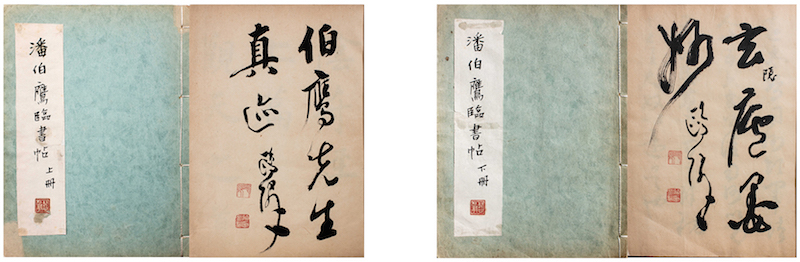 潘伯鷹臨書帖 上冊
伯鹰先生
真迹
潘伯鷹臨書帖 下冊
玄隐庐墨
妙